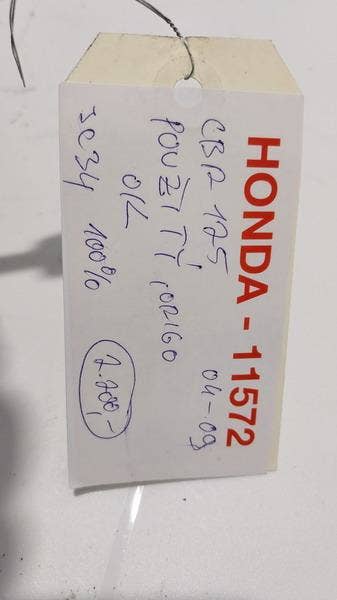 HONDA - 11572
CBR 125 04-09
POUŽITÝ, ORIGO
OK
JC34 100%
2.200,-